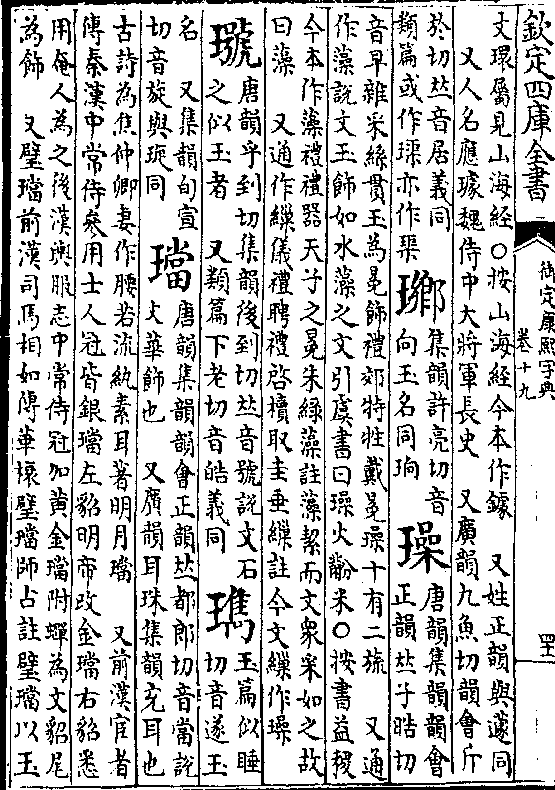 欽定四庫全書
御定康熙字典
卷十九
文環屬見山海經○按山海經今本作鐻　又姓正韻與蘧同
又人名應璩魏侍中大將軍長史　又廣韻九魚切韻會斤
於切𠀤音居義同
類篇或作璖亦作琹
𤪯
集韻許亮切音
向玉名同珦
璪
唐韻集韻韻會
正韻𠀤子晧切
音早雜采絲貫玉為冕飾禮郊特牲戴冕璪十有二旒　又通
作藻說文玉飾如水藻之文引虞書曰璪火黺米○按書益稷
今本作藻禮禮器天子之冕朱綠藻註藻絜而文衆采如之故
曰藻　又通作繅儀禮聘禮啓櫝取圭垂繅註今文繅作璪
號
唐韻乎到切集韻後到切𠀤音號說文石
之似玉者　又類篇下老切音皓義同
瓗
玉篇似睡
切音遂玉
名　又集韻旬宣
切音旋與琁同
璫
唐韻集韻韻會正韻𠀤都郎切音當說
文華飾也　又廣韻耳珠集韻充耳也
古詩為焦仲卿妻作腰若流紈素耳著明月璫　又前漢宦者
傳秦漢中常侍參用士人冠皆銀璫左貂明帝改金璫右貂悉
用奄人為之後漢輿服志中常侍冠加黃金璫附蟬為文貂尾
為飾　又璧璫前漢司馬相如傳華榱璧璫師古註璧璫以玉